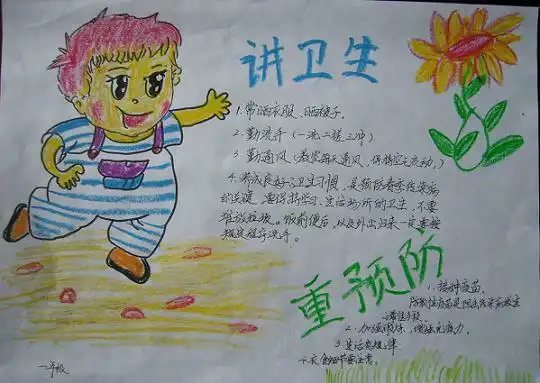 讲卫生
1.常晒衣服、晒被子.
2.勤洗手(一洗二搓三冲)
3.勤通风(教室每天通风,保持空气流动,)
4.养成良好卫生习惯,是预防春季传染病
的关键,要保持学习、生活场所的卫生,不要
堆放垃圾。饭前便后,以及外出归来一定要按
规定程序洗手。
重预防
1.接种疫苗.
2.加强锻炼,增强免疫力。
3.生活有规律
4.衣食细节要注意.
二年级